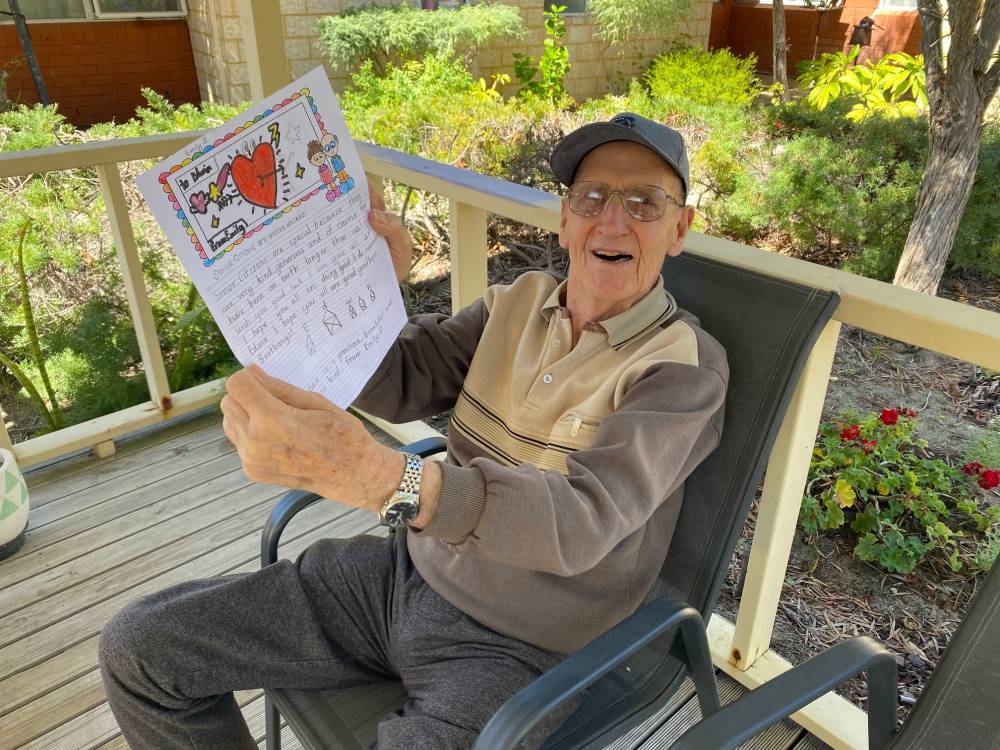 Emily
To Edwin
From: Emily
Senior Citizens are special because
Senior citizens are special because they
are very kind, generous and of course
have been on earth longer than us! I
wish you good luck. I love you all and
I hope you all are doing good! I do
Edwin I hope you all good
generous, beautiful
kind! from Emily!